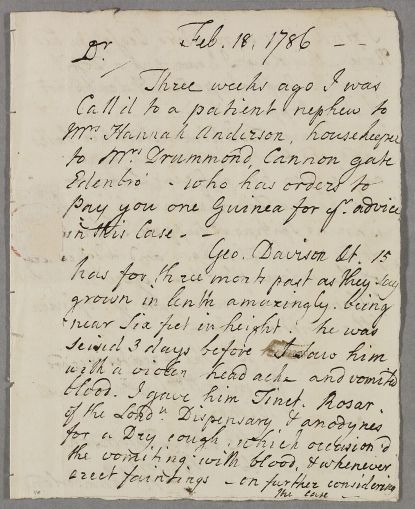 Feb. 18. 1786 - -
Dr.
Three weeks ago I was
Call'd to a patient nephew to
Mrs Hannah Anderson, housekeeper
to Mrs Drummond, Cannon gate
Edenbro' - who has orders to
Pay you one Guinea for yr. advice
in this Case - -
Geo. Davison Æt. 15
has for three month past as they say
grown in lenth amazingly. being
near Six feet in height. he was
seised 3 days before I saw him
with a violen head ach and vomitd
blood. I gave him Tinct. Rosar.
of the Londn. Dispensary & anodynes
for a Dry cough, which occasion'd
the vomiting with blood, & whenever
erect faintings - on further considering
the case -